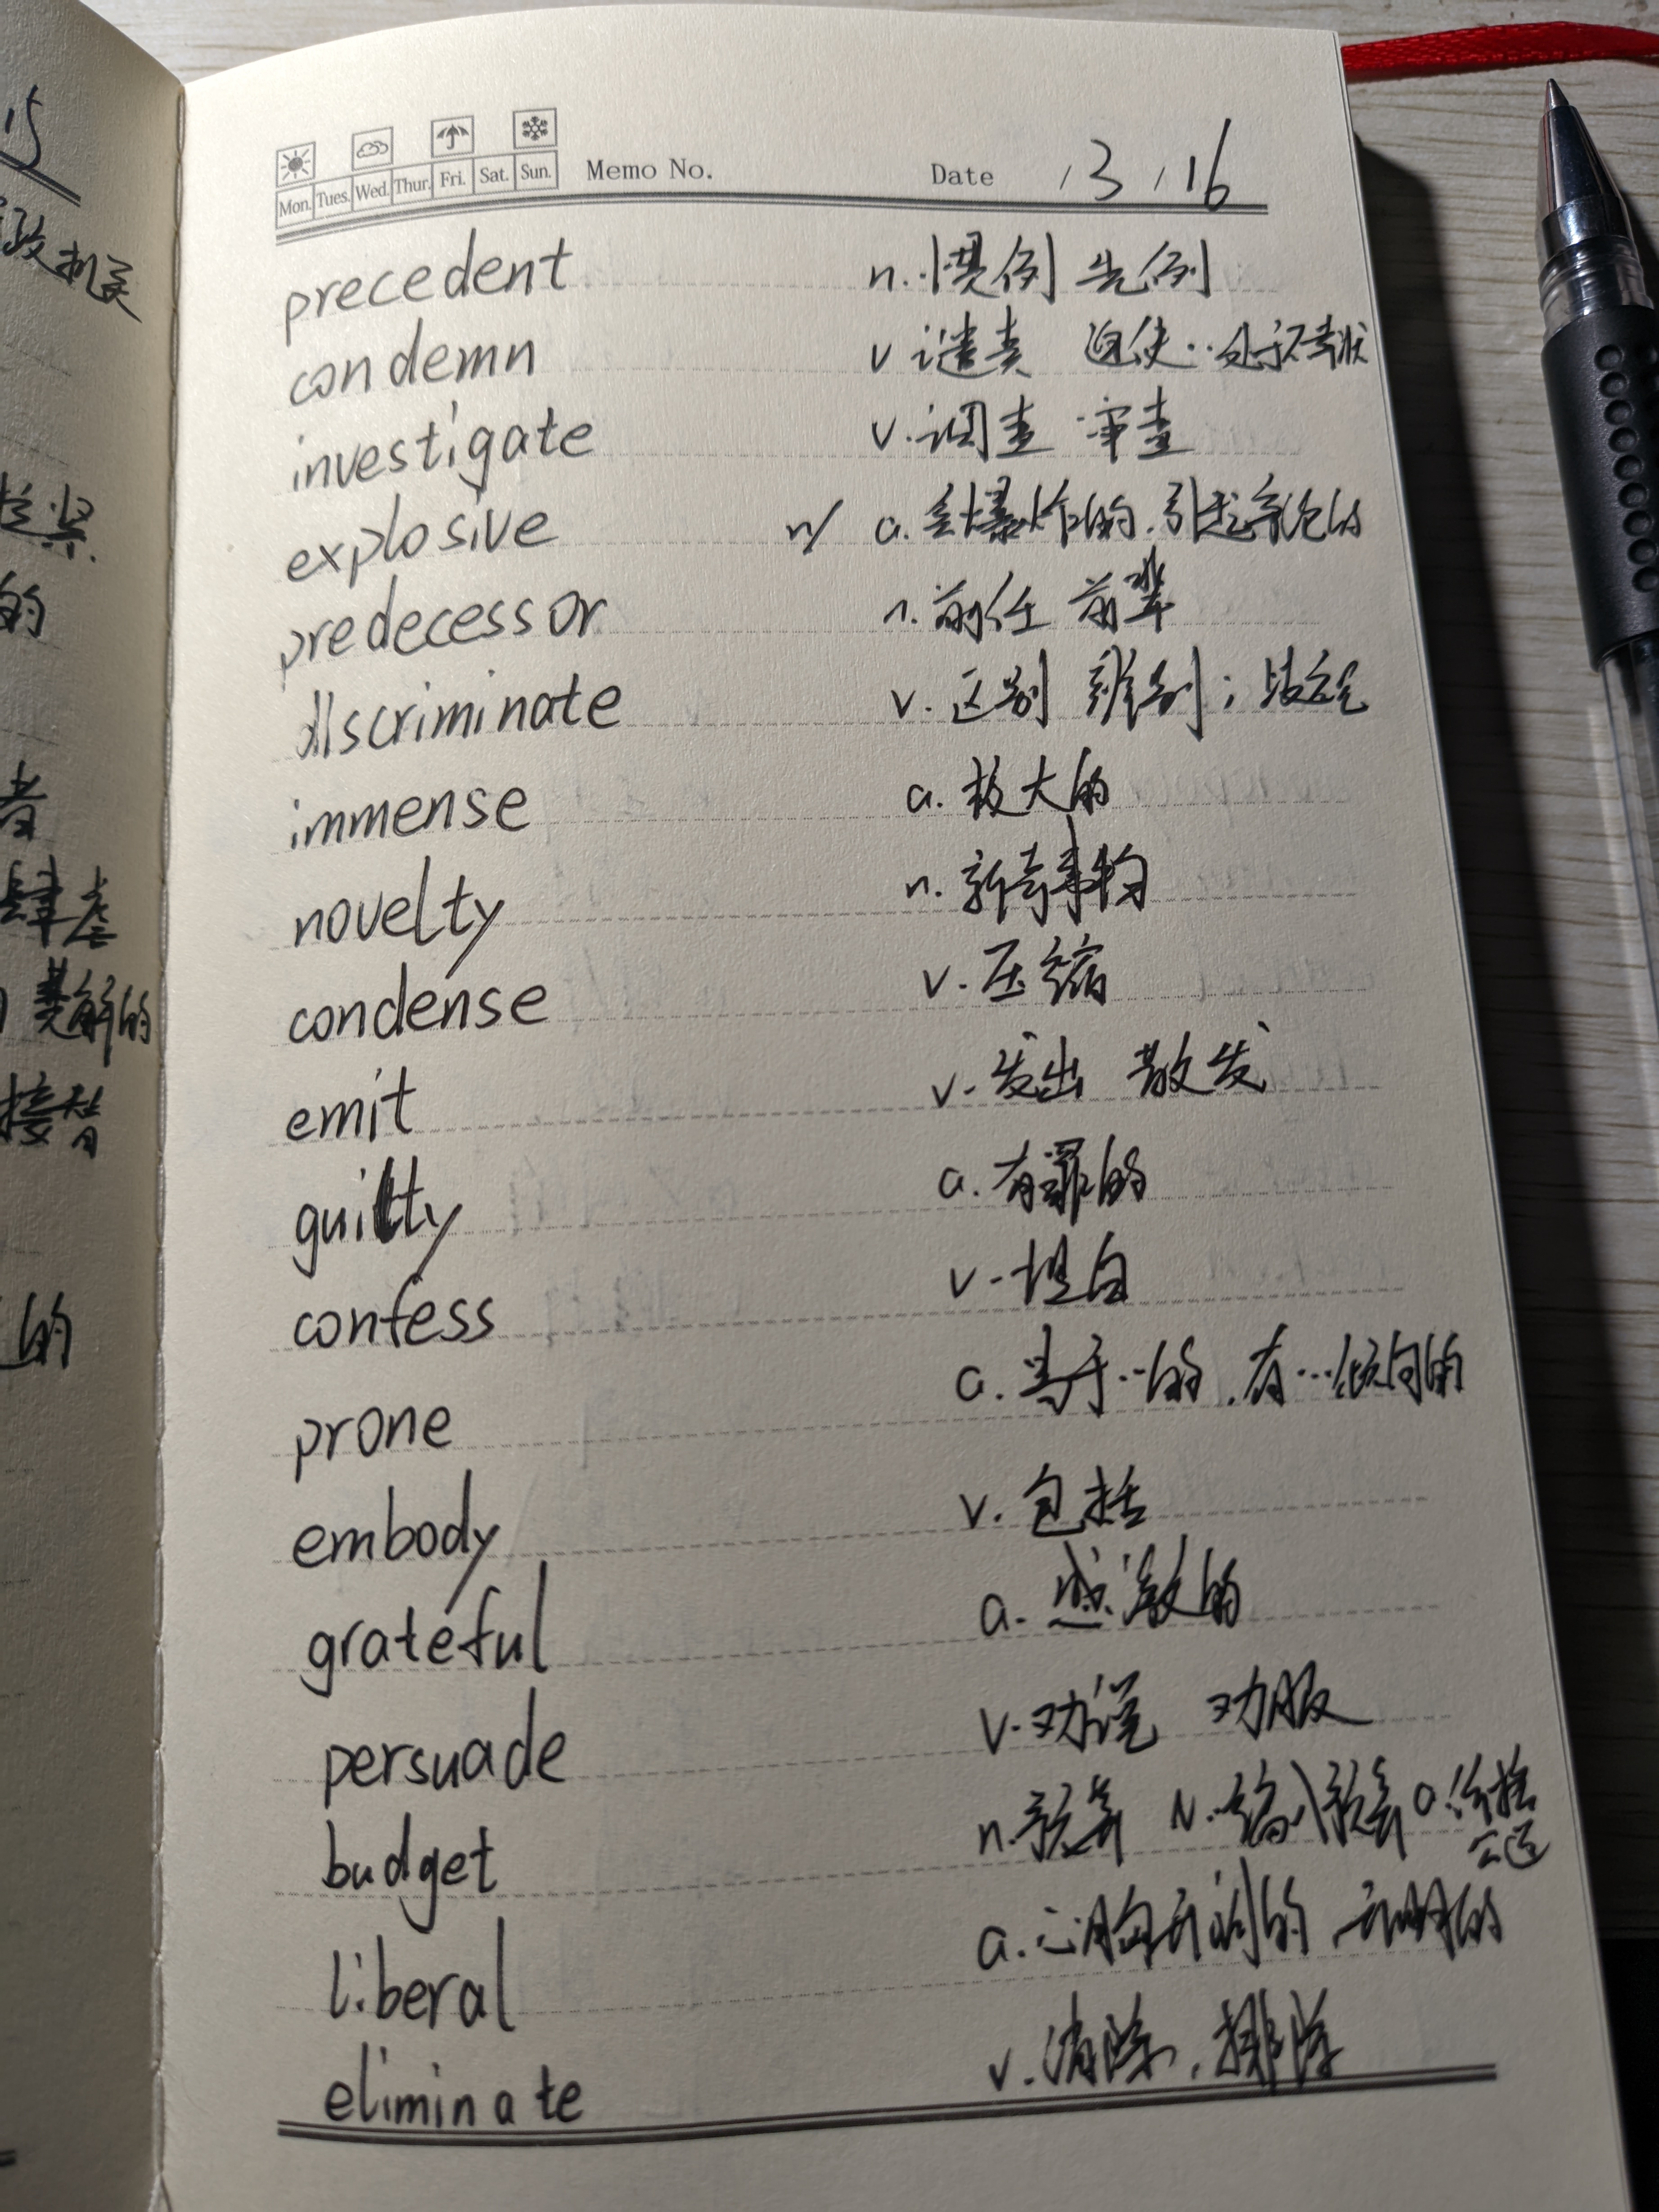 15
政机关
的
者
美解的
接替
的
Mon. Tues. Wed. Thur. Fri. Sat. Sun. Memo No. Date /3/16
precedent n. 惯例 先例
condemn v 谴责 迫使··处于不幸状
investigate v. 调查 审查
explosive n/ a. 会爆炸的.引起争论的
predecessor n. 前任 前辈
discriminate v. 区别 辨别;歧视
immense a. 极大的
novelty n. 新奇事物
condense v. 压缩
emit v. 发出 散发
guilty a. 有罪的
confess v. 坦白
prone a. 易于··的.有···倾向的
embody v. 包括
grateful a. 感激的
persuade v. 劝说 劝服
budget n. 预算 v. 编入预算 a. 价格
liberal a. 心胸开阔的 开明的
eliminate v. 消除.排除